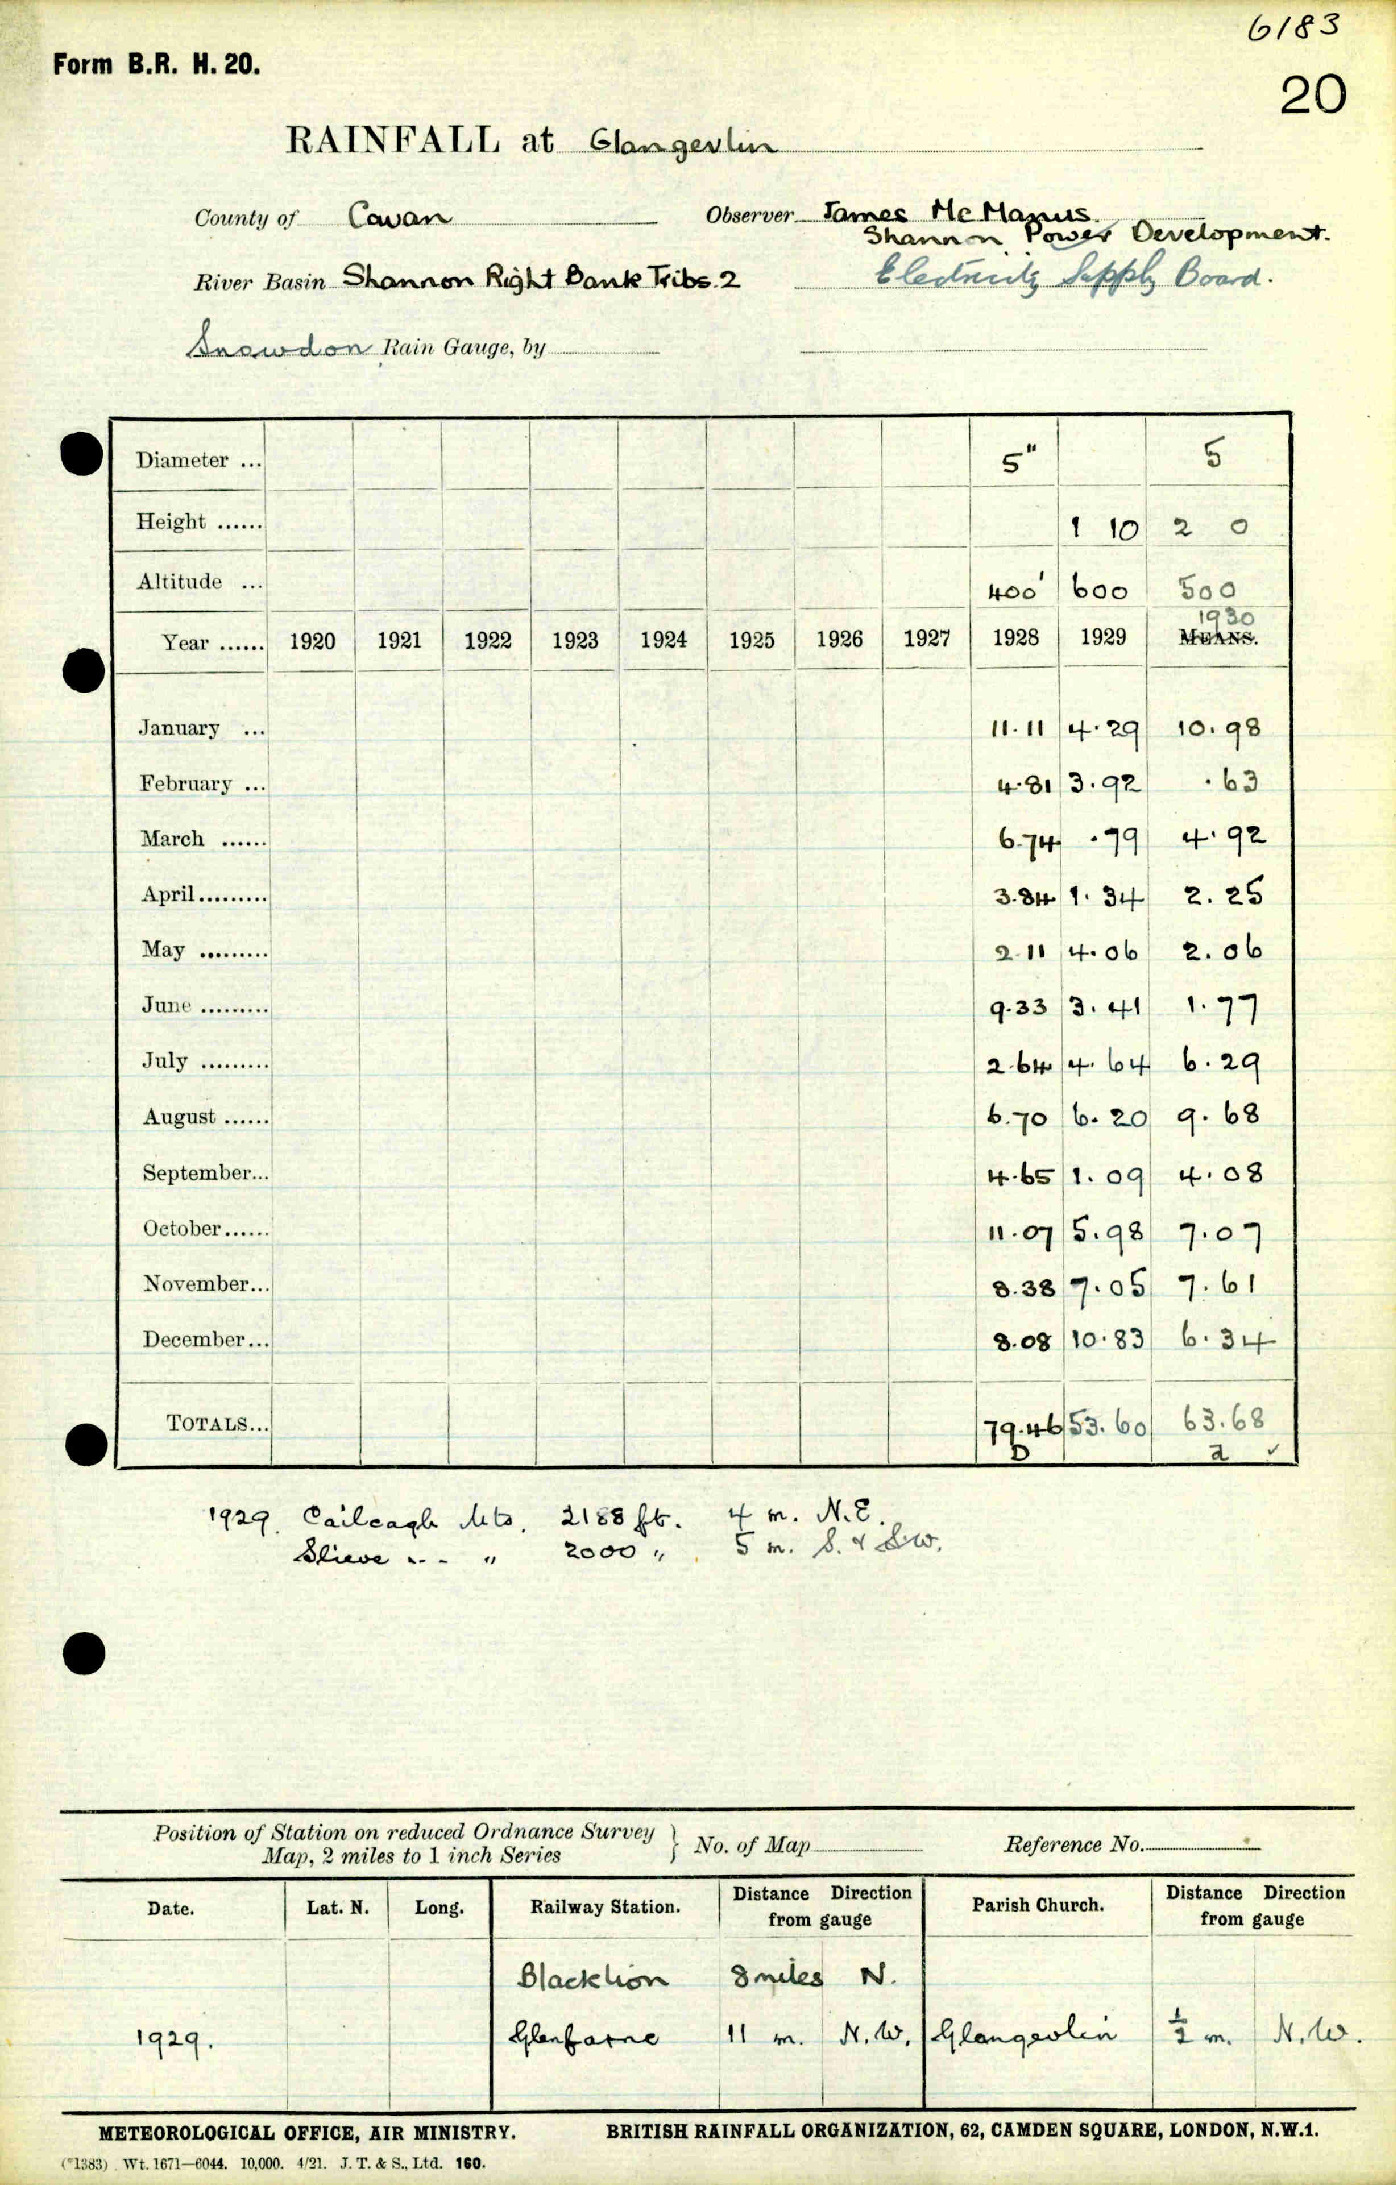 6183
Form B.R. H. 20.
20
RAINFALL at Glangevlin
County of Cavan Observer James McManus.
Shannon Power Development.
River Basin Shannon Right Bank Tribs. 2 Electricity Supply Board.
Snowdon Rain Gauge, by
Diameter ... 5" 5
Height ...... 1 10 2 0
Altitude ... 400' 600 500
1930
Year ...... 1920 1921 1922 1923 1924 1925 1926 1927 1928 1929 MEANS.
January ... 11.11 4.29 10.98
February ... 4.81 3.92 .63
March ...... 6.74 .79 4.92
April ......... 3.84 1.34 2.25
May ......... 2.11 4.06 2.06
June ......... 9.33 3.41 1.77
July ......... 2.64 4.64 6.29
August ...... 6.70 6.20 9.68
September... 4.65 1.09 4.08
October ...... 11.07 5.98 7.07
November... 8.38 7.05 7.61
December... 8.08 10.83 6.34
TOTALS... 79.46 53.60 63.68
D a ✓
1929. Cailcagh Mts. 2188 ft. 4 m. N.E.
Slieve - - - " 2000 " 5 m. S. & S.W.
Position of Station on reduced Ordnance Survey
Map, 2 miles to 1 inch Series } No. of Map Reference No.
Date. Lat. N. Long. Railway Station. Distance Direction from gauge Parish Church. Distance Direction from gauge
Blacklion 8 miles N.
1929. Glenfarne 11 m. N.W. Glangevlin ½ m. N.W.
METEOROLOGICAL OFFICE, AIR MINISTRY. BRITISH RAINFALL ORGANIZATION, 62, CAMDEN SQUARE, LONDON, N.W.1.
(*1383) Wt. 1671—6044. 10,000. 4/21. J. T. & S., Ltd. 160.